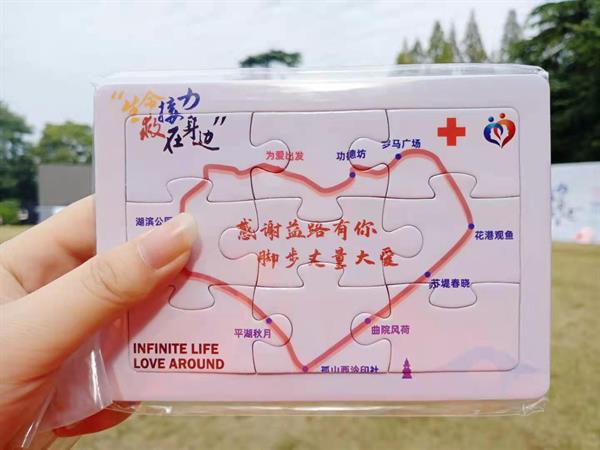 "生命接力
救在身边"
为爱出发
功德坊
马广场
湖滨公园
感谢益路有你
脚步丈量大爱
花港观鱼
苏堤春晓
平湖秋月
曲院风荷
孤山西泠印社
INFINITE LIFE
LOVE AROUND